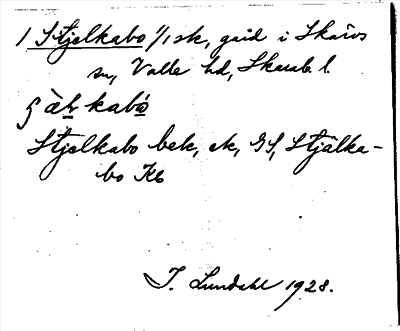 1 Stjelkabo 1/1 sk, gård i Skärvs
sn, Valle hd, Skarab. l.
kabo
Stjelkabo bek, ek, GS, Stjälka-
bo Kb
I. Lundahl 1928.